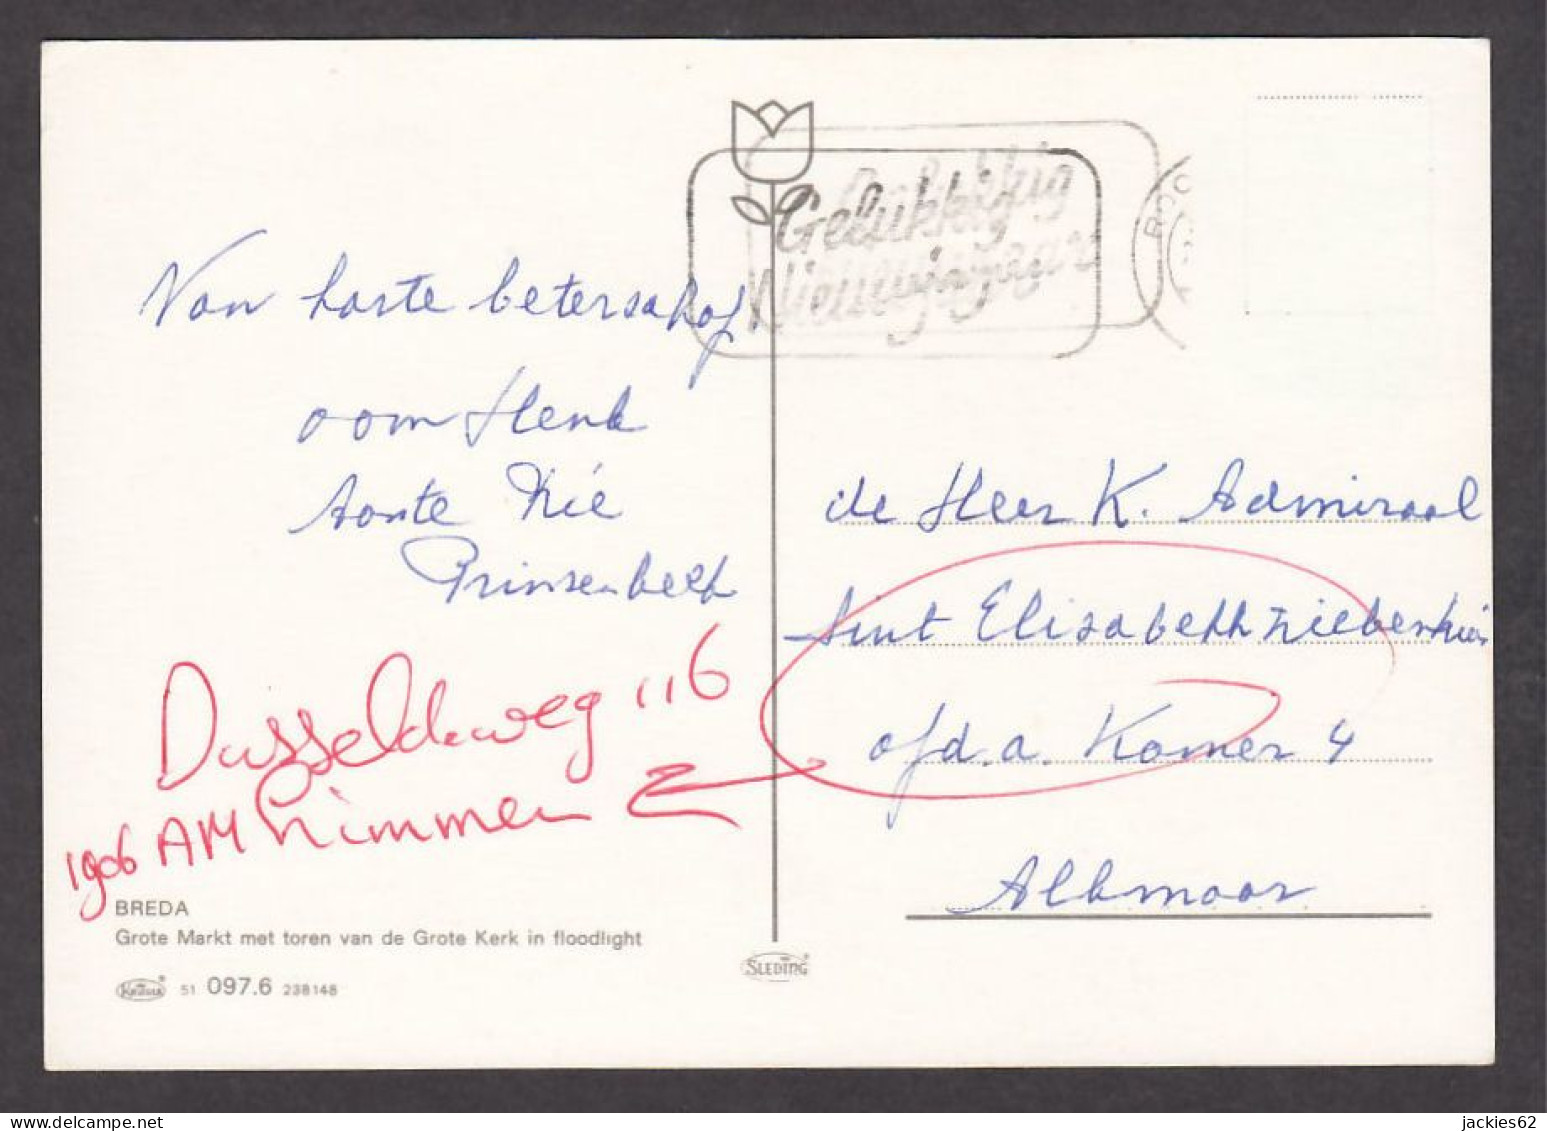 Gelukkig
Nieuwjaar
ROO
Van harte beterschap
oom Henk
tante Nie
Prinsenbeek
de Heer K. Admiraal
Sint Elisabeth Ziekenhuis
afd. a. Kamer 4
Alkmaar
Dusseldorweg 116
1906 AM Limmen
BREDA
Grote Markt met toren van de Grote Kerk in floodlight
KRUGER 51 097.6 238148
SLEDING
jackies62